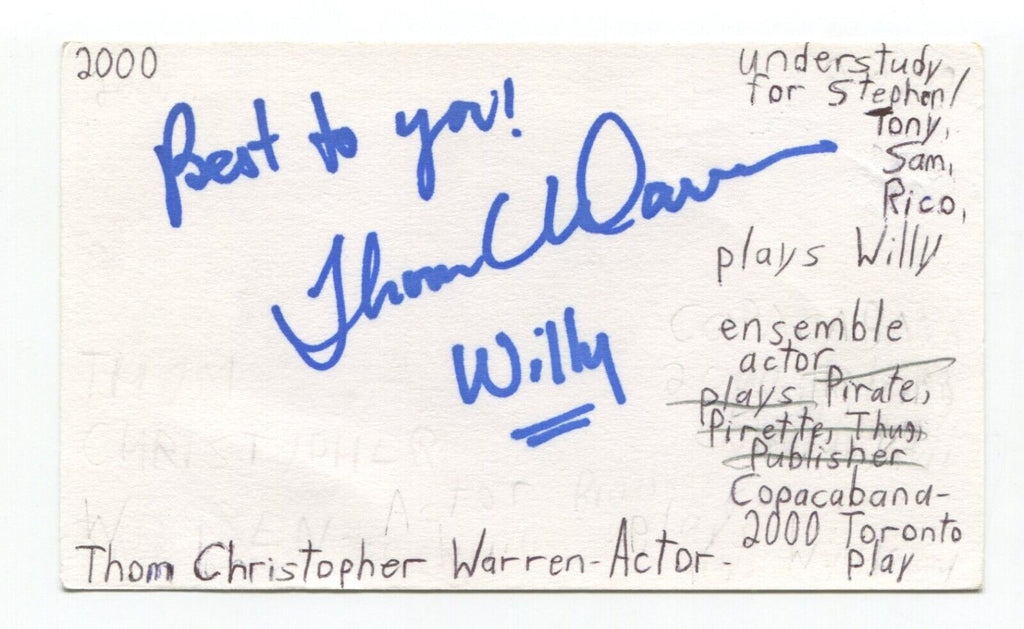 2000
Best to you!
Thom C Warren
Willy
understudy
for Stephen/
Tony,
Sam,
Rico,
plays Willy
ensemble
actor
plays Pirate,
Pirette, Thug,
Publisher
Copacabana-
2000 Toronto
play
Thom Christopher Warren-Actor-